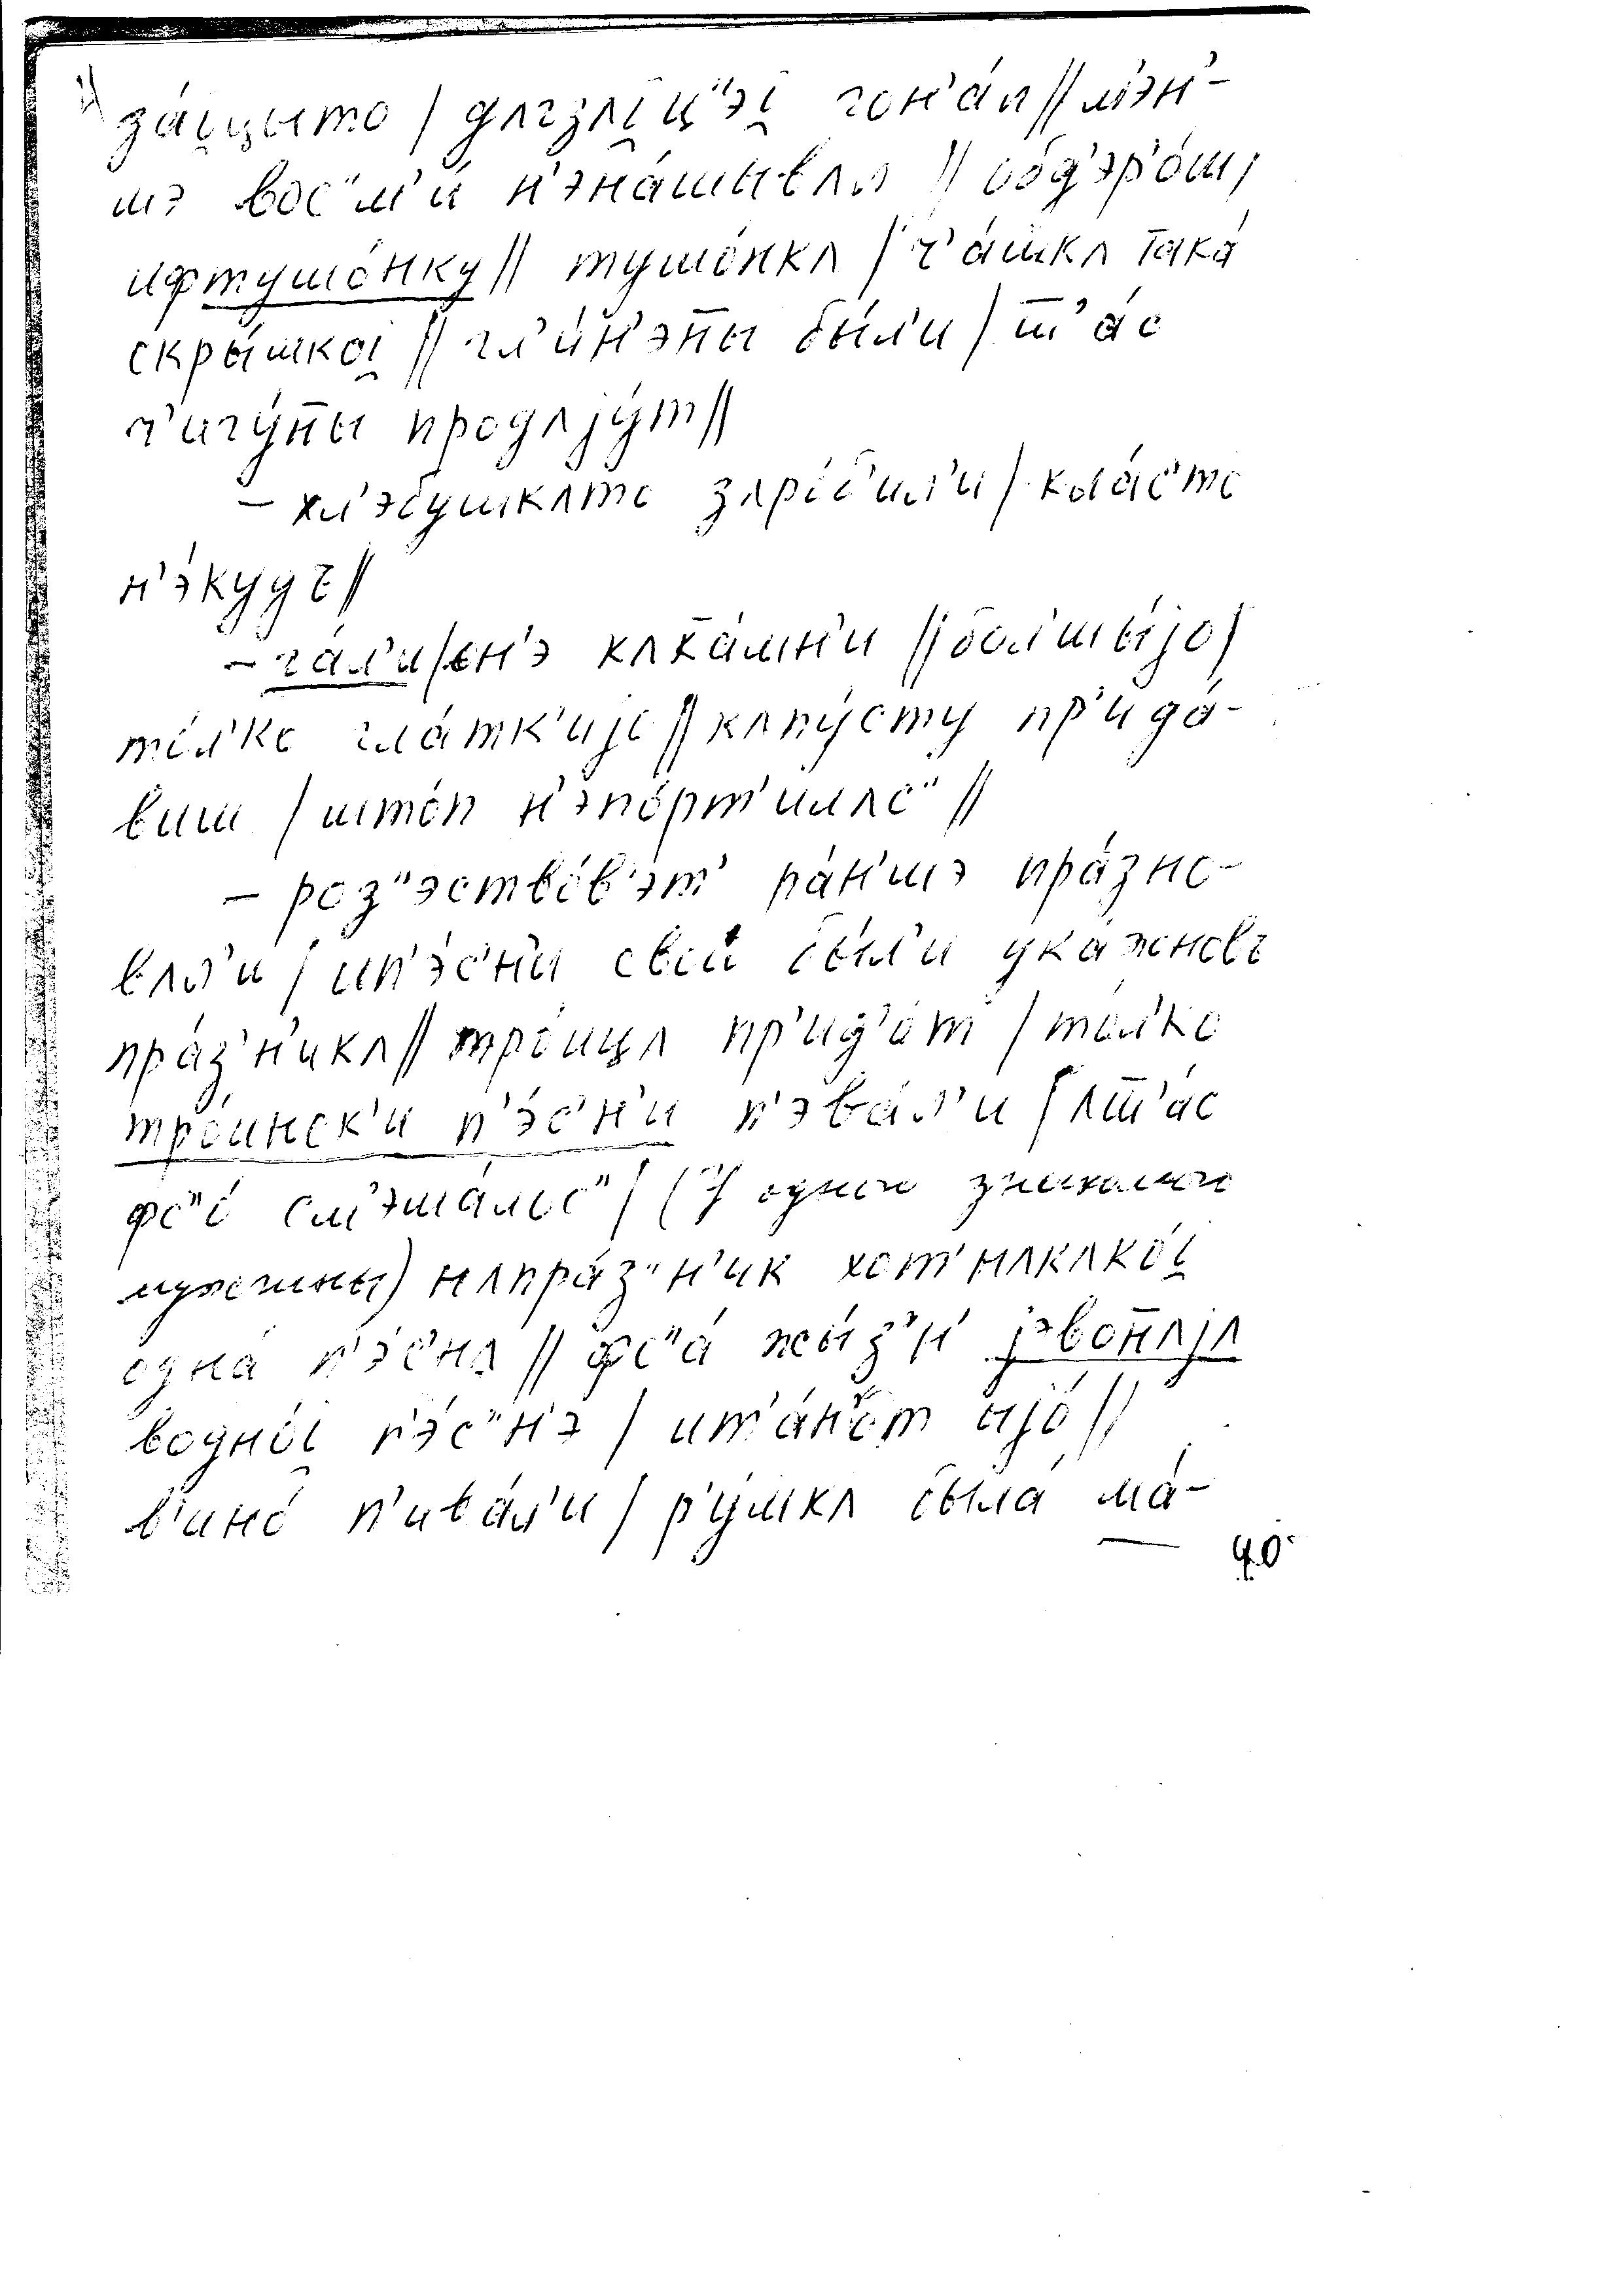 за́i̯цыто / длгзлi̯ц"эi̯ гон'а́л // м'эн'-
шэ вос"м'и́ н'эна́шывлл // обд'эр'о́ш /
ифтушо́нку // тушо́нкл / ч'а́шкл така́
скры́шкоi̯ // гл'и́н'эн̄ы бы́л'и / ш̄'ас
ч'игу́н̄ы продлjу́т //
– хл'э́бушклто злро́б'ил'и / кла́с'т'
н'э́кудъ //
– га́л'и / он'э́ клка́мн'и // бол'шы́jо /
то́л'ко гла́тк'иjо // клпу́сту пр'ида́-
виш / што́п н'эпо́рт'иллс" //
– роз"эство́в'эт' ра́н'шэ пра́зно-
влл'и / ип'э́с'н'и свои́ бы́л'и ука́жновъ
пра́з'н'икл // тро́ицл пр'ид'о́т / то́л'ко
тро́инск'и п'э́с'н'и п'эва́л'и / лш̄'ас
фс"о́ см'эша́лос" / (У одного знакомого
мужчины) нлпра́з"н'ик хот'нлклко́i̯
одна́ п'э́с'нл // фс"а́ жы́з'н' jэво́н̄лjл
водно́i̯ п'э́с"н'э / ит'а́н'от иjо́ //
в'ино́ п'ива́л'и / р'у́мкл была́ ма́-
40